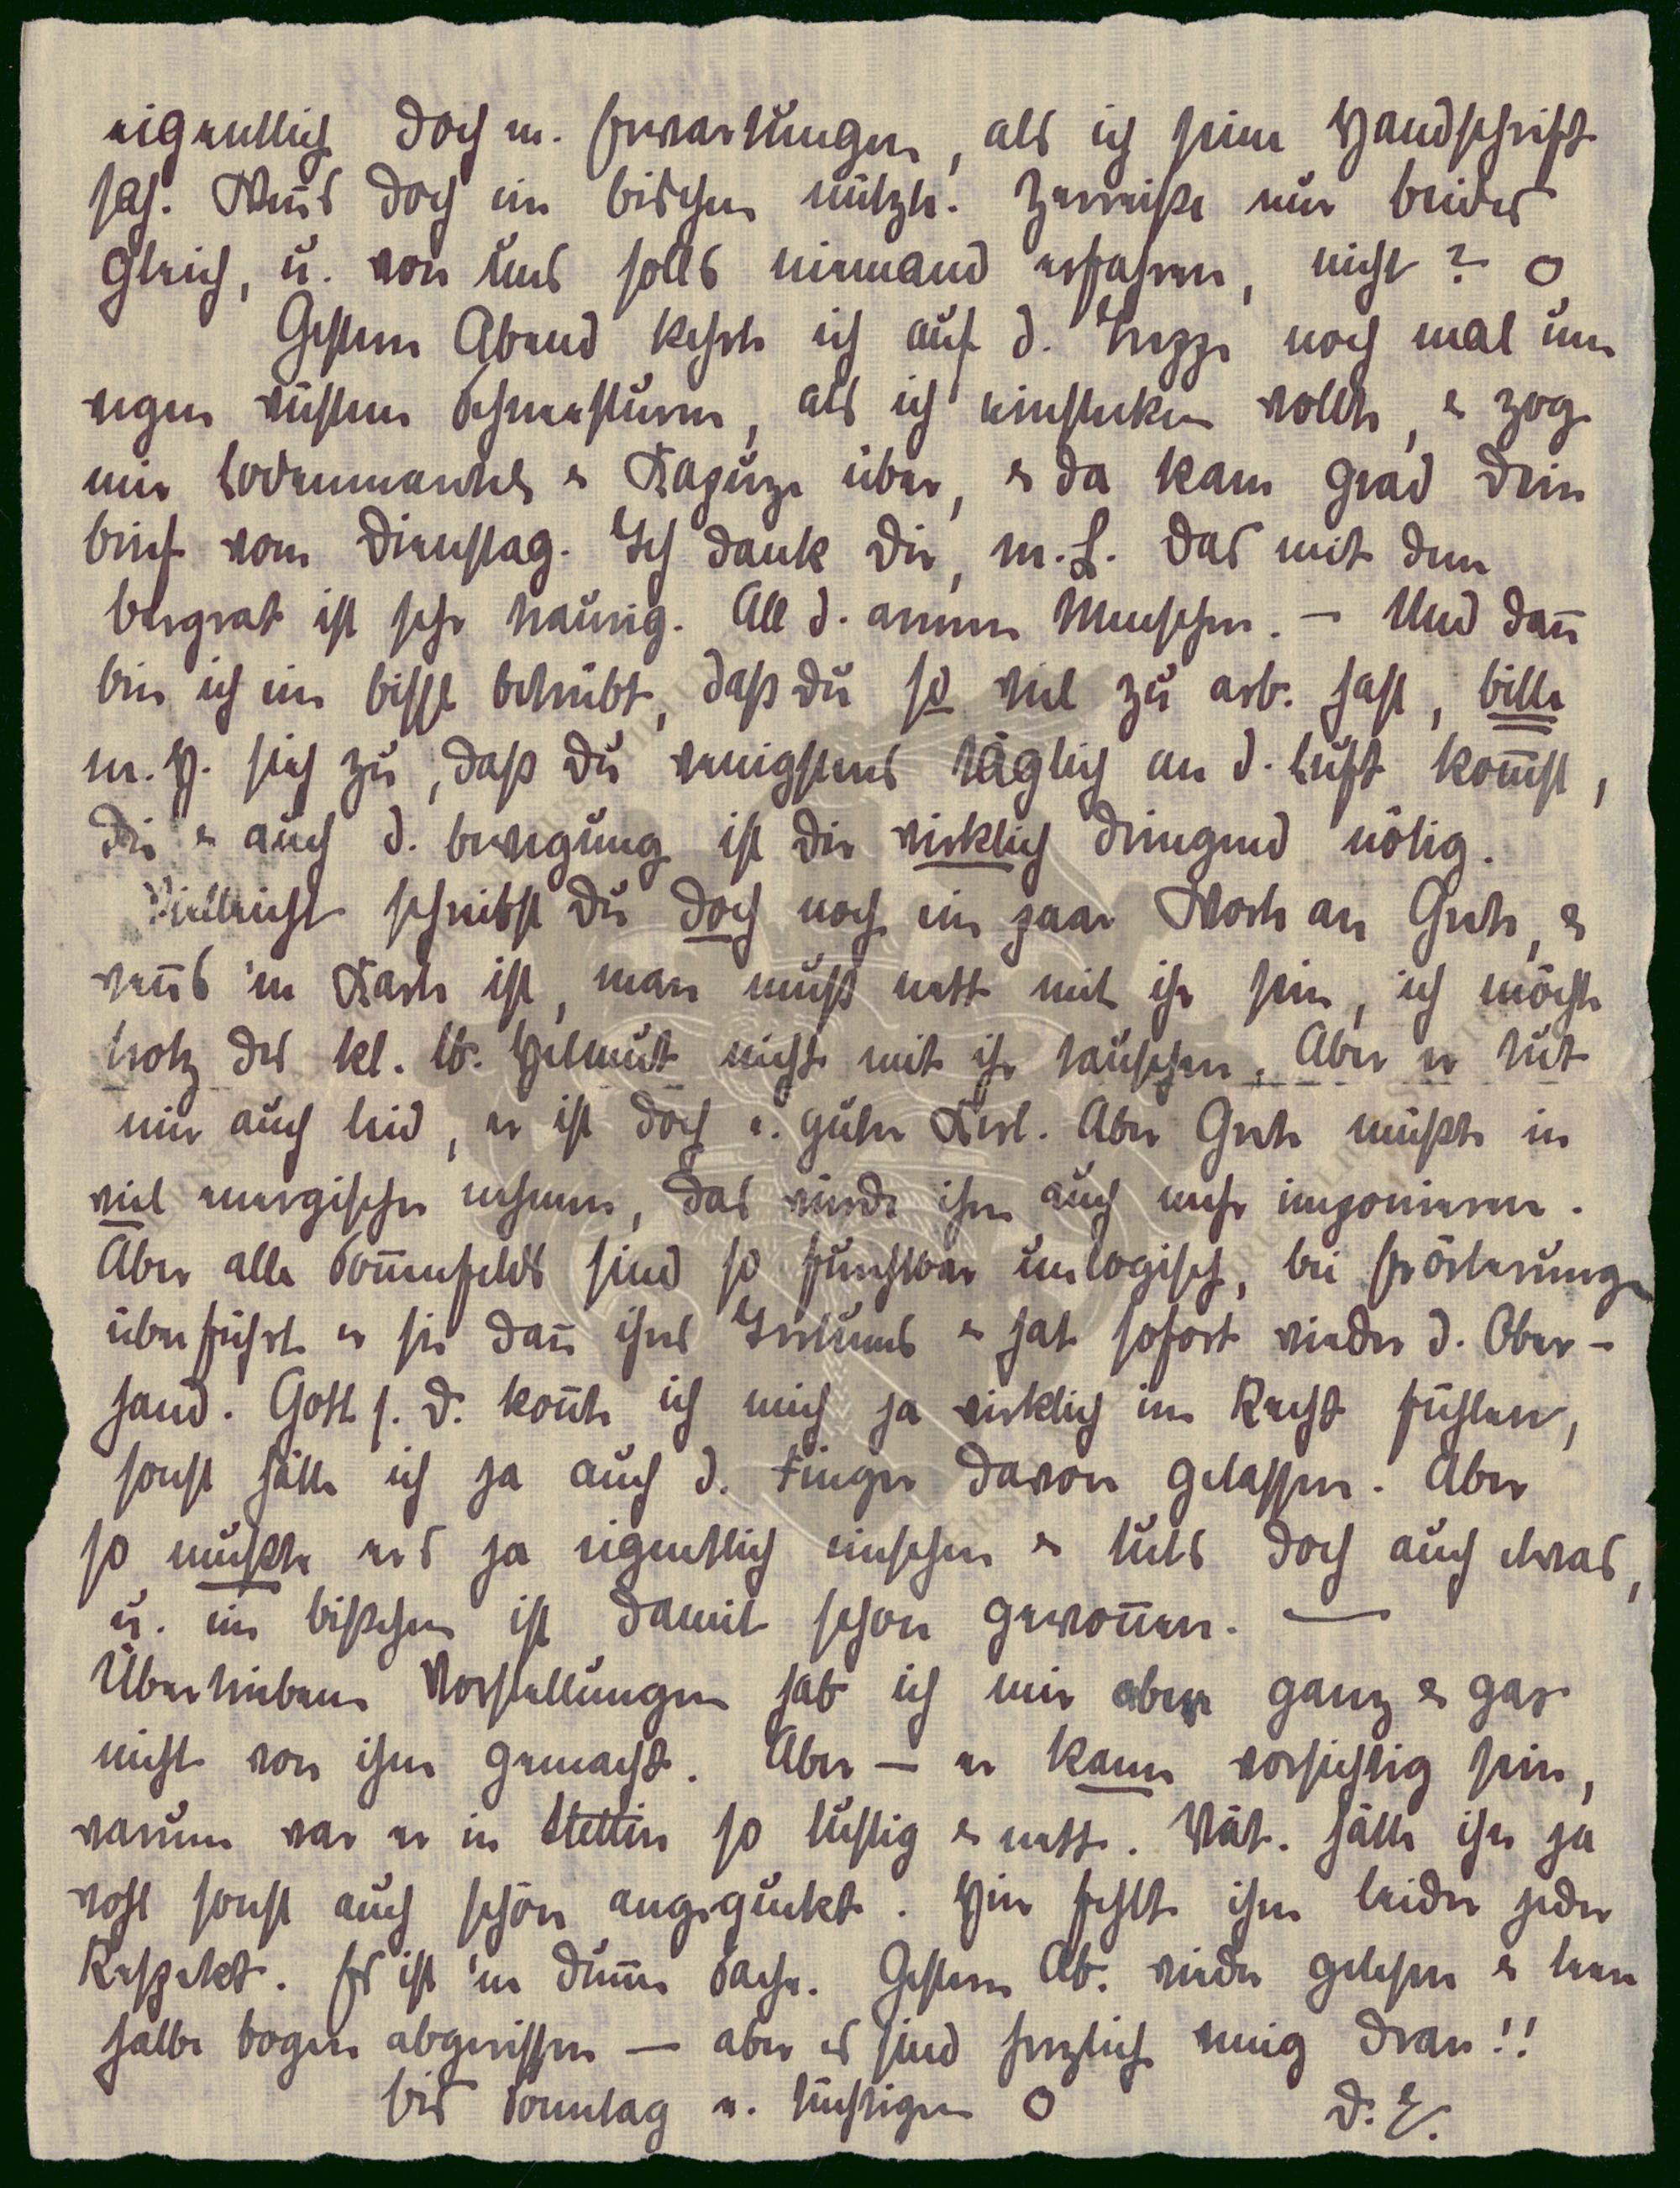 eigentlich doch m. Erwartungen, als ich seine Handschrift
sah. Wenns doch ein bischen nützte. Zerreiße nur beides
gleich, u. von uns solls niemand erfahren, nicht? O
Gestern Abend kehrte ich auf d. Treppe noch mal um
wegen wüstem Schneesturm, als ich einstecken wollte, & zog
mir Lodenmantel & Kapuze über, & da kam grad Dein
Brief vom Dienstag. Ich dank Dir, m. L. Das mit dem
Bergrat ist sehr traurig. All d. armen Menschen. – Und dan̄
bin ich ein bissl betrübt, daß Du so viel zu arb. hast, bitte
m. H. sieh zu, daß Du wenigstens täglich an d. Luft kom̄st,
die & auch d. Bewegung ist Dir wirklich dringend nötig.
Vielleicht schreibst Du doch noch ein paar Worte an Grete, &
wen̄s 'ne Karte ist, man muß nett mit ihr sein, ich möchte
trotz des kl. lb. Helmut nicht mit ihr tauschen. Aber er tut
mir auch leid, er ist doch e. guter Kerl. Aber Grete müßte ihn
viel energischer nehmen, das würde ihm auch mehr imponieren.
Aber alle Som̄erfelds sind so furchtbar unlogisch, bei Erörterungen
überführt er sie dan̄ ihres Irrtums & hat sofort wieder d. Ober-
hand. Gott s. D. kon̄te ich mich ja wirklich im Recht fühlen,
sonst hätte ich ja auch d. Finger davon gelassen. Aber
so mußte ers ja eigentlich einsehen & tuts doch auch etwas,
u. ein bißchen ist damit schon gewon̄en. —
Übertriebene Vorstellungen hab ich mir aber ganz & gar
nicht von ihm gemacht. Aber – er kann vorsichtig sein,
warum war er in Stettin so lustig & nett. Vät. hätte ihn ja
wohl sonst auch schön angeguckt. Hier fehlt ihm leider jeder
Respekt. Es ist 'ne dum̄e Sache. Gestern Ab. wieder gelesen & leere
halbe Bogen abgerissen – aber es sind herzlich wenig dran!!
Bis Sonntag e. tüchtigen O D. E.